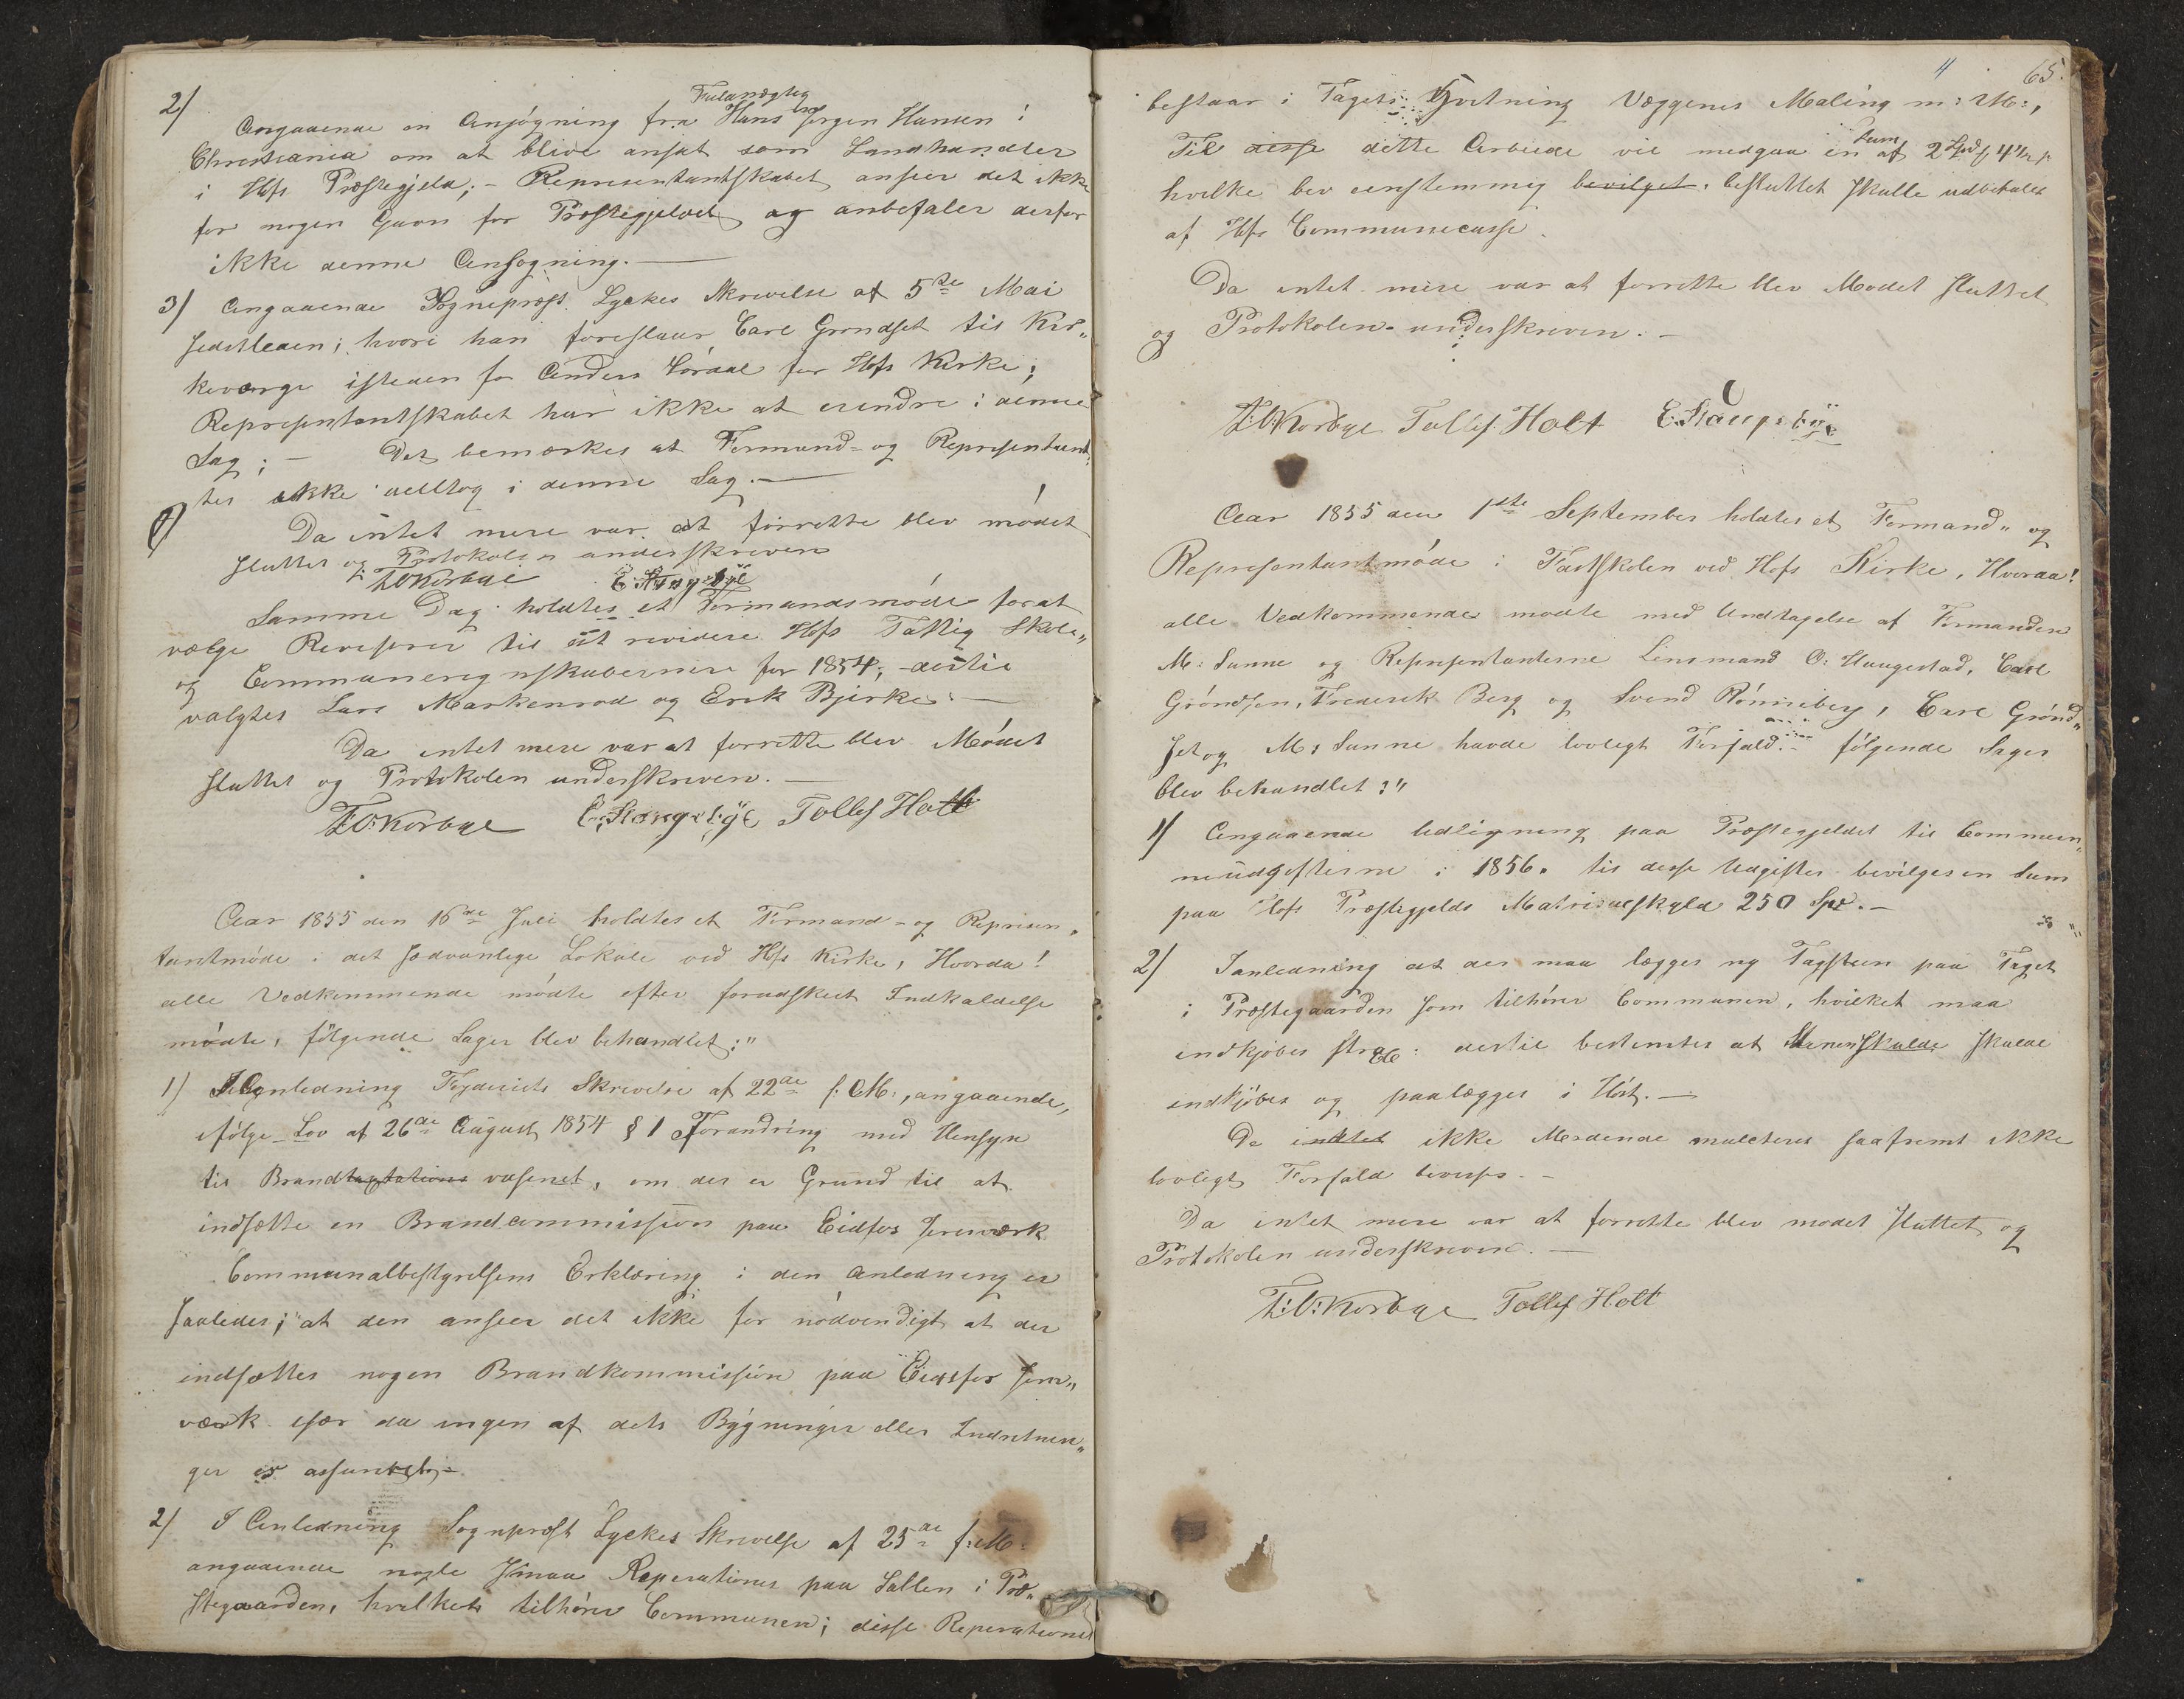 2/ Fuldmægtig
Angaaende en Ansøgning fra Hans Jørgen Hansen i
Christiania om at blive ansat som Landhandler
i Hofs Præstegjeld; - Repræsentantskabet anseer det ikke
for nogen Gavn for Præstegjeldet og anbefaler derfor
ikke denne Ansøgning. —
3/ Angaaende Sognepræst Lyckes Skrivelse af 5te Mai
sidstleden; hvori han foreslaar Carl Grøndset til Kir„
keværge isteden for Anders for Hofs Kirke;
Repræsentantskabet har ikke at erindre i denne
Sag; — Det bemærkes at Formand- og Repræsentant„
ter ikke deeltog i denne Sag. —
Da intet mere var at forrette blev mødet
sluttet og Protokolen underskreven
T:O:Korbye E:Stangebye
Samme Dag holdtes et Formandsmøde forat
vælge Revisorer til at revidere Hofs Fattig Skole„
og Communeregnskaberne for 1854; - dertil
valgtes Lars Markenrod og Erik Bjerke. —
Da intet mere var at forrette blev Mødet
sluttet og Protokolen underskreven. —
T:O:Korbye E:Stangebye Tollef Holt
Aar 1855 den 16de Juli holdtes et Formand- og Represen„
tantmøde i det sædvanlige Lokale ved Hofs Kirke, Hvorda!
alle Vedkommende mødte efter foradskeet Indkaldelse
mødte, følgende Sager blev behandlet:"
1/ I Anledning Fogderiets Skrivelse af 22de f: M:, angaaende,
ifølge Lov af 26de August 1854 § 1 Forandring med Hensyn
til Brandtaxtations væsenet, om der er Grund til at
indsætte en Brandcommission paa Eidfos Jernværk
Communalbestyrelsens Erklæring i den Anledning er
saaledes; at den anseer det ikke for nødvendigt at der
indsættes nogen Brandkommission paa Eidsfos Jern„
værk især da ingen af dets Bygninger eller Indretnin„
ger er assureret. -
2/ I Anledning Sognpræst Lyckes Skrivelse af 25de f: M:
angaaende nogle smaa Reperationer paa Sallen i Præ„
stegaarden, hvilket tilhører Communen; disse Reperationer
65.
bestaar i Tagets Hvitning Væggenes Maling m: M:,
Til desse dette Arbeide vil medgaa en Sum af 2 Spd
hvilke blev eenstemmig bevilget. besluttet skulle udbetales
af Hofs Communecasse.
Da intet mere var at forrette blev Mødet sluttet
og Protokolen underskreven. -
T:O:Korbye Tollef Holt E:Stangebye
Aar 1855 den 1ste September holdtes et Formand„ og
Representantmøde i Fastskolen ved Hofs Kirke, Hvoraa!
alle Vedkommende mødte med Undtagelse af Formanden
M: Sunne og Representanterne Linsmand O: Haugestad, Carl
Grøndsen, Frederik Berg og Svend Rønneberg, Carl Grønd„
set og M: Sunne havde lovligt Forfald. - følgende Sager
blev behandlet:"
1/ Angaaende Udligning paa Præstegjeldet til Commun„
neudgifterne i 1856. til desse Udgifter bevilges en Sum
paa Hofs Præstegjelds Matriculskyld 250 Spd. -
2/ Ianledning at der maa lægges ny Tagsteen paa Taget
i Præstegaarden som tilhører Communen, hvilket maa
indkjøbes strax: dertil bestemtes at Stenen skulde skulde
indkjøbes og paalægges i Høst. —
De indtet ikke Mødende mulcteres saafremt ikke
lovligt Forfald bevises. -
Da intet mere var at forrette blev mødet sluttet og
Protokolen underskreven. —
T:O:Korbye Tollef Holt